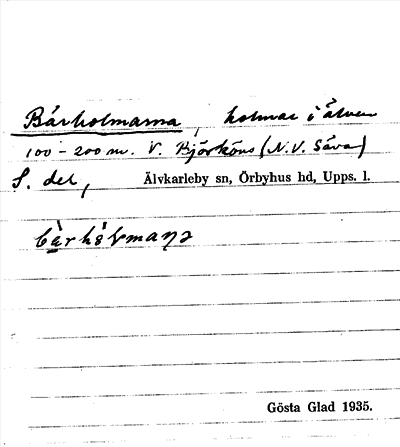 Bärholmarna, holmar i älven
100-200 m. V. Björköns (N.V. Säva)
S. del, Älvkarleby sn, Örbyhus hd, Upps. l.
Gösta Glad 1935.